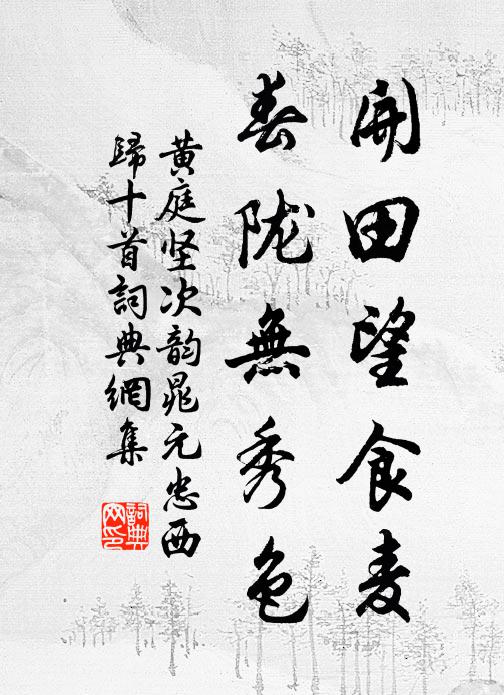 開田望食麦
春陇無秀色
黄庭坚次韵晁元忠西
歸十首詞典網集
詞典网印